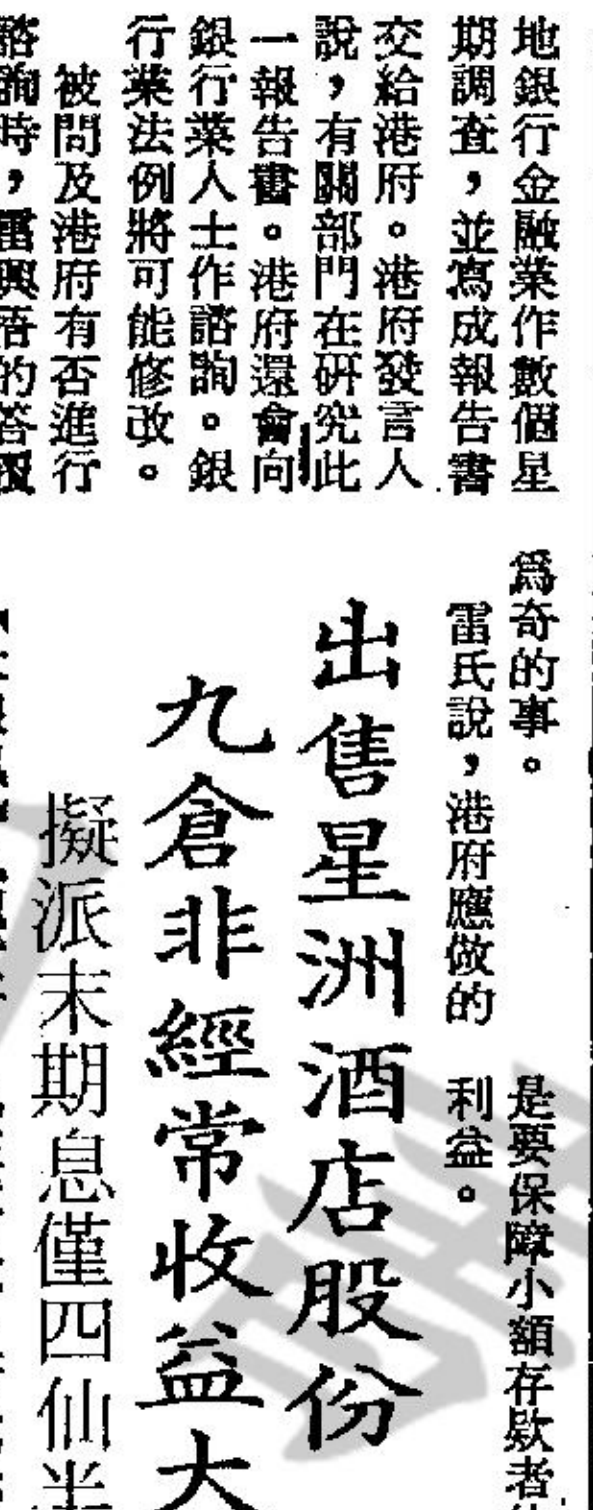 地銀行金融業作數個星
期調查，並寫成報告書
交給港府。港府發言人
說，有關部門在研究此
一報告書。港府還會向
銀行業人士作諮詢。銀
行業法例將可能修改。
被問及港府有否進行
諮詢時，雷興悟的答覆
為奇的事。
雷氏說，港府應做的
是要保障小額存欵者
利益。
出售星洲酒店股份
九倉非經常收益大
擬派末期息僅四仙半